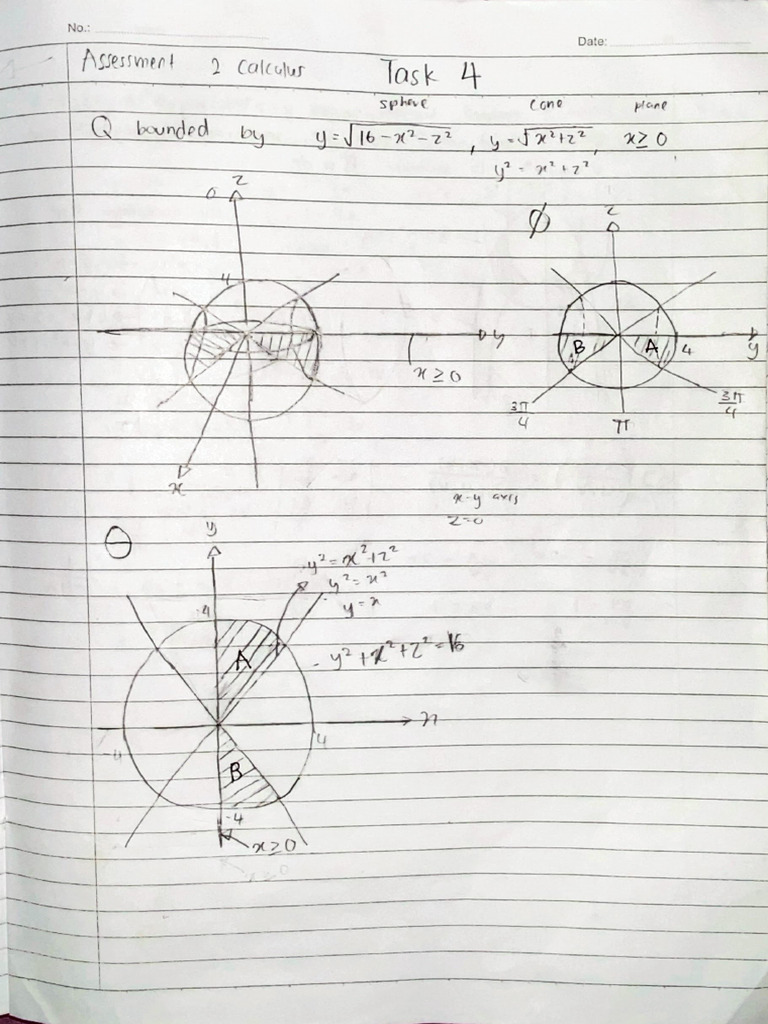 No.:
Date:
Assessment 2 Calculus Task 4
sphere cone plane
Q bounded by y = √16 - x² - z² , y = √x² + z² , x ≥ 0
y² = x² + z²
z
z
Ø
4
y
x ≥ 0
x
B
A
4
y
3π/4
π
3π/4
x-y axis
z=0
Θ
y
y² = x² + z²
y² = x²
y = x
4
A
y² + x² + z² = 16
x
-4
4
B
-4
x ≥ 0